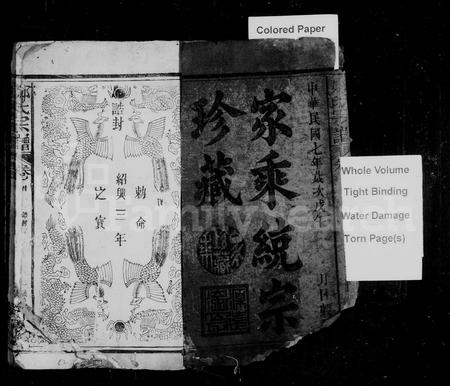 Colored Paper
中華民國七年歲次戊午
月日
家乘統宗
珍藏
Whole Volume
Tight Binding
Water Damage
Torn Page(s)
誥封
勅命
紹興三年
之寶
氏宗譜
FamilySearch